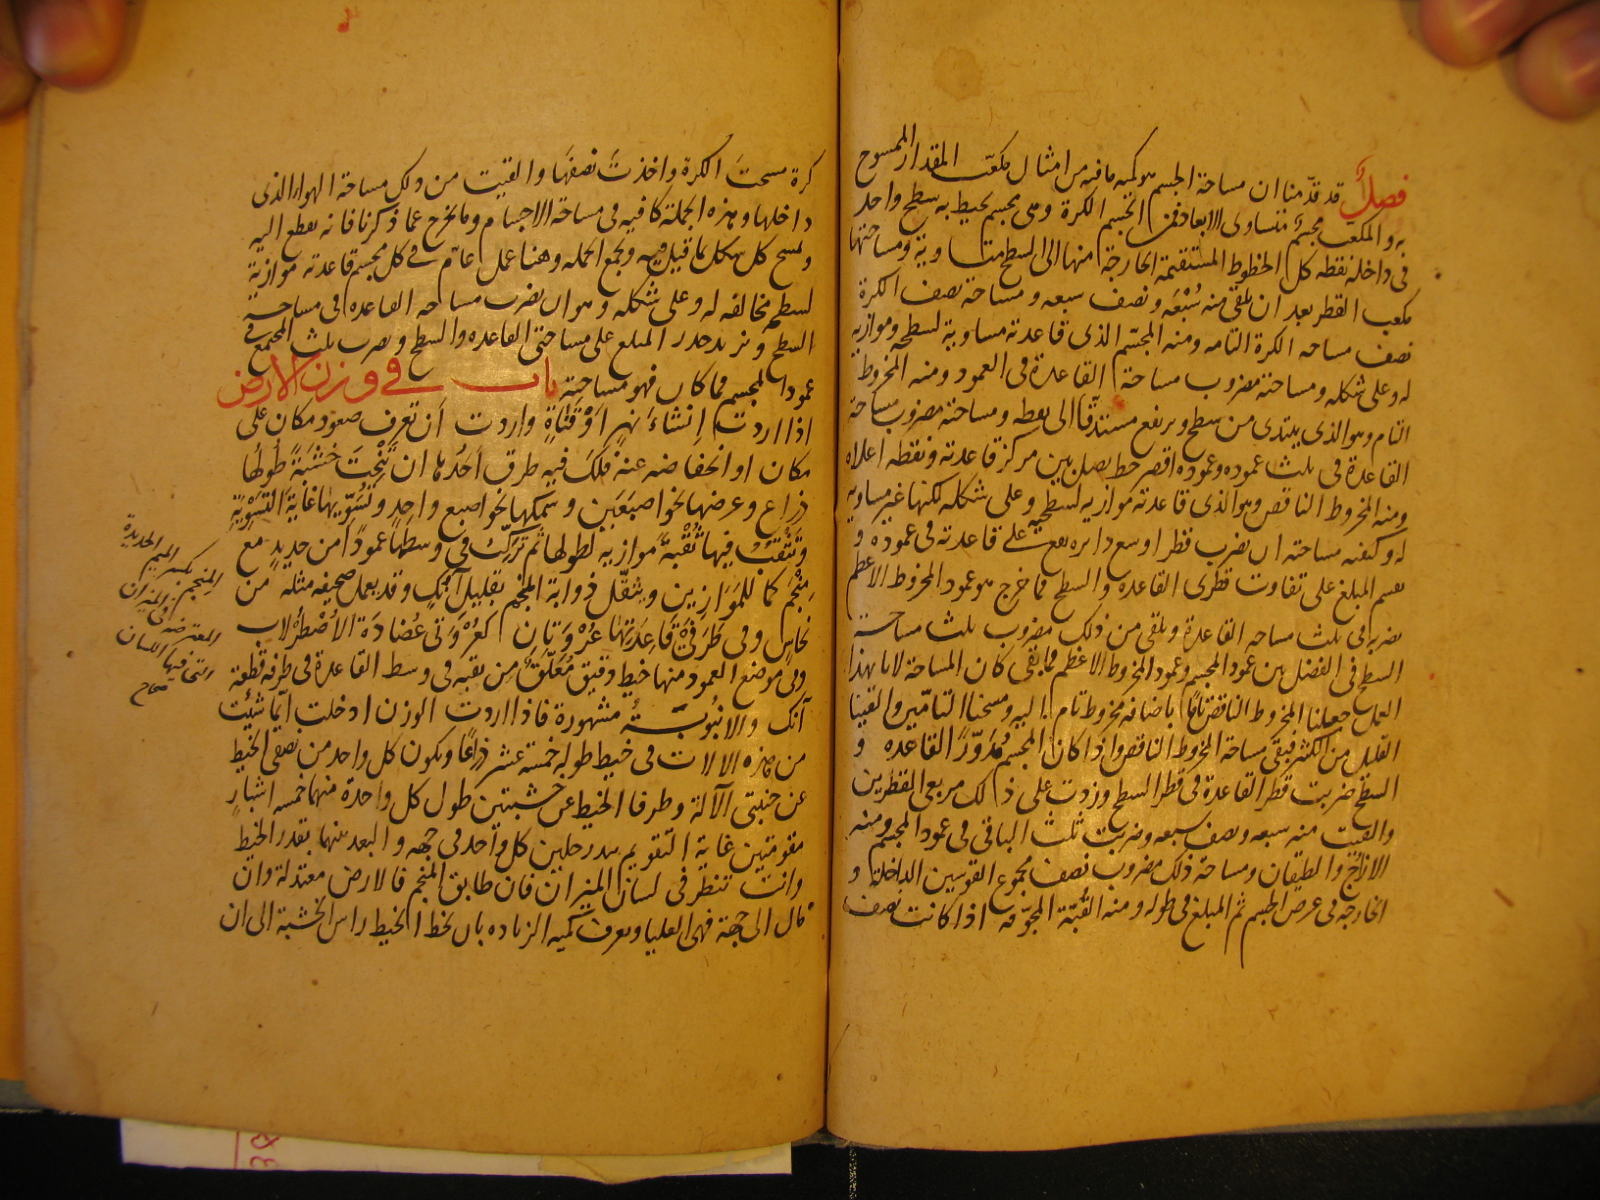 فصل قد قدمنا ان مساحة الجسم هو كميه ما فيه من امثال مكعب المقدار الممسوح
به والمكعب مجسم متساوى الابعاد فمن الجسم الكرة وهى مجسم يحيط به سطح واحد
فى داخله نقطه كل الخطوط المستقيمة الخارجة منها الى السطح متساوية ومساحتها
مكعب القطر بعد ان يلقى منه سُبْعَه ونصف سبعه ومساحة نصف الكرة
نصف مساحه الكرة التامه ومنه المجسّم الذى قاعدته مساوية لسطحه وموازيه
له وعلى شكله ومساحته مضروب مساحة القاعدة فى العمود ومنه المخروط
التام وهو الذى يبتدى من سطح ويرتفع مستدقًا الى نقطه ومساحته مضروب مساحة
القاعدة فى ثلث عموده وعموده اقصر خط يصل بين مركز قاعدته ونقطه اعلاه
ومنه المخروط الناقص وهو الذى قاعدته موازيه لسطحه وعلى شكله لكنها غير مساويه
له وكيفيه مساحته ان يضرب قطر اوسع دايره يقع على قاعدته فى عموده و
يقسم المبلغ على تفاوت قطرى القاعده والسطح فما خرج هو عمود المخروط الاعظم
يضربه فى ثلث مساحه القاعدة ويلقى من ذلك مضروب ثلث مساحة
السطح فى الفضل بين عمود المجسم وعمود المخروط الاعظم فما بقى كان المساحة لانا بهذا
العمل جعلنا المخروط الناقص تامًا باضافه مخروط تام اليه ومسحنا التامّين والقينا
القليل من الكثير فبقى مساحة المخروط الناقص واذا كان المجسم مُدوّرَ القاعده و
السطح ضربت قطر القاعدة فى قطر السطح وزدت على ذلك مربعى القطرين
والقيت منه سبعه ونصف سبعه وضربت ثلث الباقى فى عمود المجسم ومنه
الازاج والطيقان ومساحة ذلك مضروب نصف مجموع القوسين الداخلة و
الخارجه فى عرض الجسم ثم المبلغ فى طوله ومنه القُبّة المجوّفه اذا كانت نصف
كرة مسحتَ الكرة واخذتَ نصفهَا والقيت من ذلك مساحة الهواء الذى
داخلها وهذه الجملة كافيه فى مساحة الاجسام وما يخرج عما ذكرنا فانه يقطع اليه
ويمسح كل شكل بما قيل فيه ويجمع الجمله وهنا عمل عامّ فى كل مجسم قاعدته موازية
لسطح مخالفه له وعلى شكله وهو ان يضرب مساحه القاعده فى مساحة
السطح ويزيد جذر المبلغ على مساحتى القاعده والسطح ويضرب ثلث المجتمع فى
عمود المجسم فما كان فهو مساحته باب فى وزن الارض
اذا اردت اِنشاءَ نهرٍ اَوْ قَناةٍ واردت اَن تعرف صعود مكان على
مكان او انخفاضه عنهُ فلك فيه طرق احدها ان تَنْحِتَ خشبَةً طولُها
ذراع وعرضها نحو اصبَعَين وسمكها نحو اصبع واحدٍ وتُسَوّيها غاية التسويةِ
وتَثْقُبُ فيها ثُقْبةً موازيه لطولها ثم تركّبُ فى وسطها عمودًا من حديدٍ مع
مِنْجَمٍ كما للمَوَازِين ويثقّل ذوابة المنجم بقليل آنُكٍ وقد يعمل صحيفه مثله من
نحاس وفى طرَفَىْ قَاعِدتِها عُرْوَتان كعُرْوَتى عُضادَة الاُصْطُرْلاب
وفى موضع العمود منها خيط دقيق مُعَلّقٌ من ثقبه فى وسط القاعدة فى طرفه قطعة
آنك والانبُوبَةُ مشهورة فاذا اردت الوزن ادخلت ايّما شئت
من هذه الالات فى خيط طوله خمسة عشر ذراعًا ويكون كل واحد من نصفى الخيط
عن جنبتى الآلة وطرفا الخيط عن خشبتين طول كل واحدة منهما خمسه اشبار
مقومتين غاية التقويم بيد رجلين كل واحد فى جهه والبعد بينهما بقدر الخيط
وانت تنظر فى لسان الميزان فان طابق المنجم فالارض معتدلة وان
مال الى جهة فهى العليا ويعرف كميه الزياده بان يحط الخيط راس الخشبة الى ان
المنجم بكسر الميم الحديدة
المعترضه فى الميزان
التى فيها اللسان
صحاح